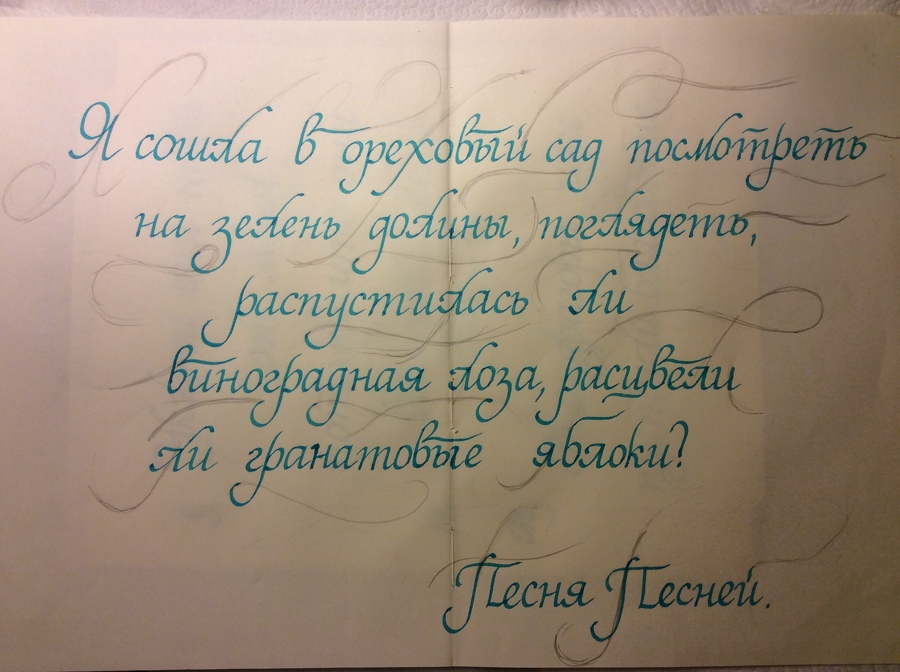 Я сошла в ореховый сад посмотреть
на зелень долины, поглядеть,
распустилась ли
виноградная лоза, расцвели
ли гранатовые яблоки?
Песня Песней.